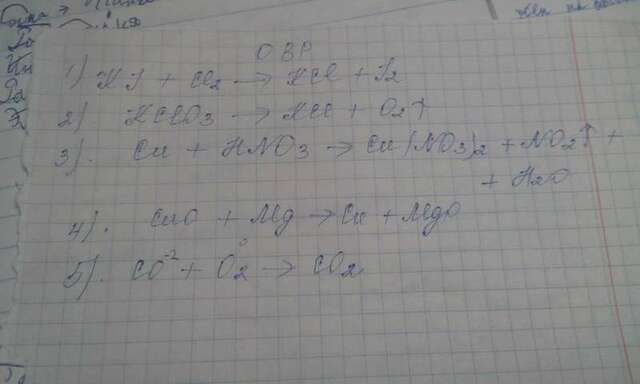 ОВР
1) KI + Cl2 → KCl + I2
2) KClO3 → KCl + O2↑
3). Cu + HNO3 → Cu(NO3)2 + NO2↑ +
+ H2O
4). CuO + Mg → Cu + MgO
5). CO⁻² + O2⁰ → CO2